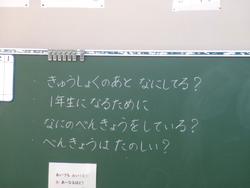 ・きゅうしょくのあと なにしてる?
・1年生になるために
なにのべんきょうをしている?
・べんきょうは たのしい?